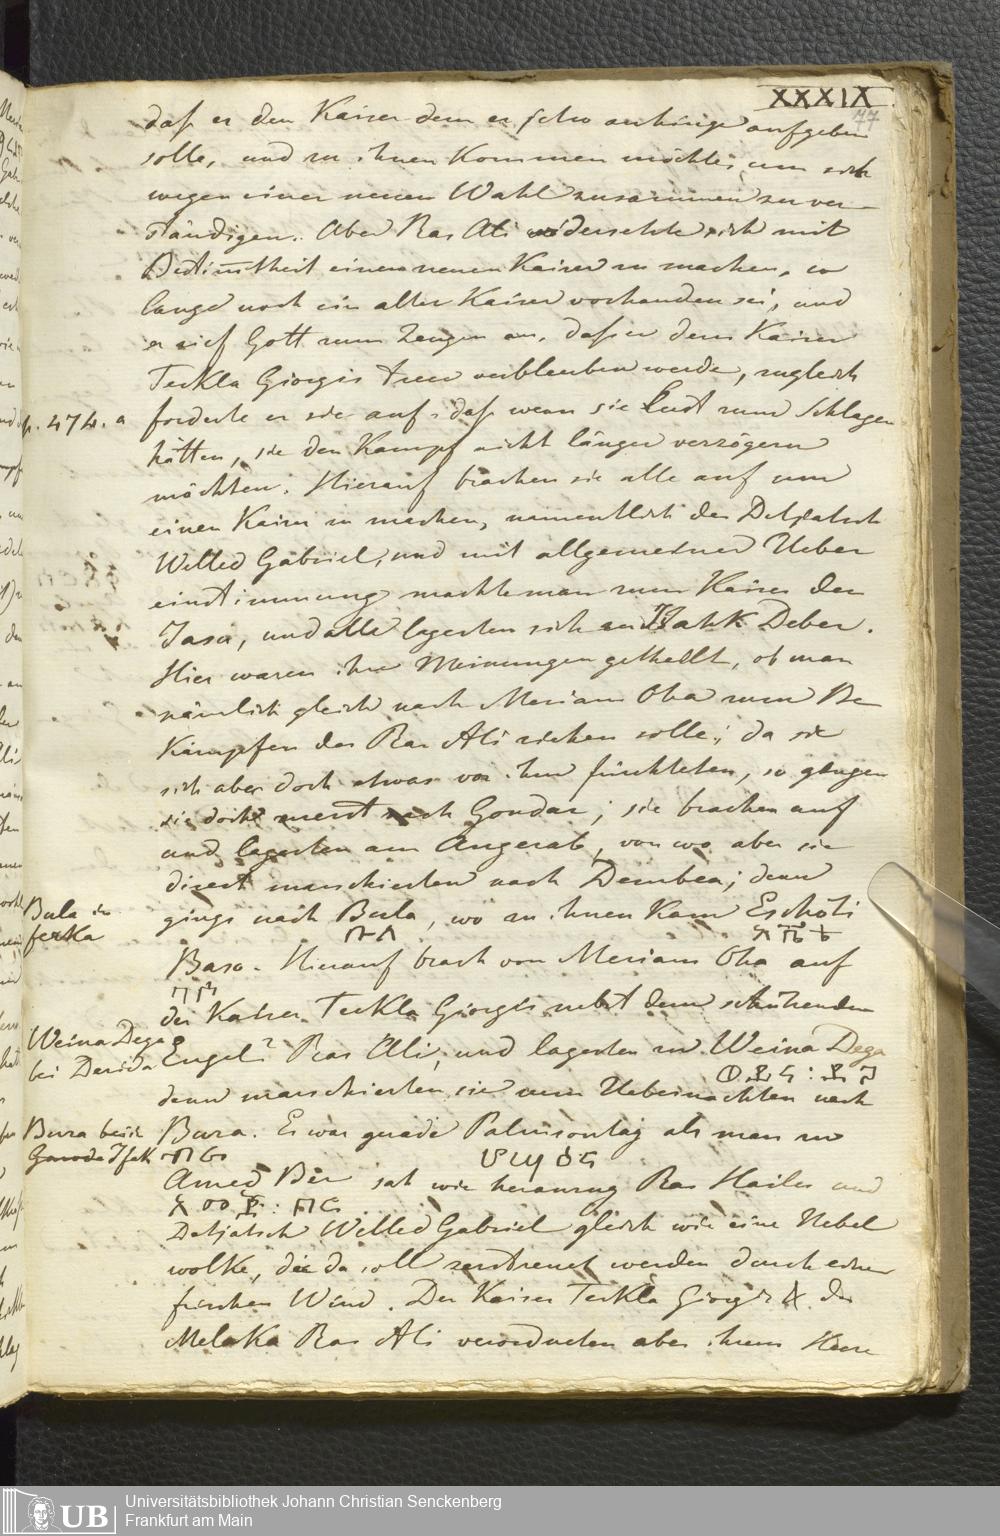 XXXIX
77
daß er den Kaiser dem er so anhänge aufgeben
solle, und zu ihnen Kommen möchte, um sich
wegen einer neuen Wahl zusammen zu ver-
ständigen. Aber Ras Ali widersetzte sich mit
Bestimtheit einen neuen Kaiser zu machen, so
lange noch ein alter Kaiser vorhanden sei, und
er rief Gott zum Zeugen an, daß er dem Kaiser
Teckla Giorgis treu verbleuben werde, zugleich
p. 474. a forderte er sie auf, daß wenn sie Lust zum Schlagen
hätten, sie den Kampf nicht länger verzögern
möchten. Hierauf brachen sie alle auf um
einen Kaiser zu machen, namentlich der Detjatsch
Welled Gabriel, und mit allgemeiner Ueber
einstimmung machte man zum Kaiser den
Jasu, und alle lagerten sich an Deber.
Hier waren ihre Meinungen getheilt, ob man
nämlich gleich nach Meriam Oha zum Be
Kämpfen des Ras Ali ziehen solle; da sie
sich aber doch etwas vor ihm fürchteten, so gingen
sie doch zuerst nach Gondar; sie brachen auf
und lagerten am Angerab, von wo aber sie
direct marschierten nach Dembea; dann
Bula in
ferKa
gings nach Bula, wo zu ihnen Kam Eschöti
ቡላ
Baso. Hierauf brach von Meriam Oha auf
der Kaiser Teckla Giorgis nebst dem schützenden
Weina Dega
bei Derida
Engel? Ras Ali, und lagerten in Weina Dega
ወይና : ደጋ
dann marschierten sie zum Uebernachten nach
Bura bei
Ifak
Bura. Es war gerade Palmsontag als man in
ቡራ ሆሣዕና
Amed Bèr sah wie heranzug Ras Hailu und
አመድ : በር
Detjatsch Welled Gabriel gleich wie eine Nebel
wolke, die da soll zerstreuet werden durch einen
frischen Wind. Der Kaiser Teckla Giorgis & der
MelaKa Ras Ali verordneten aber ihrem Heere
UB
Universitätsbibliothek Johann Christian Senckenberg
Frankfurt am Main